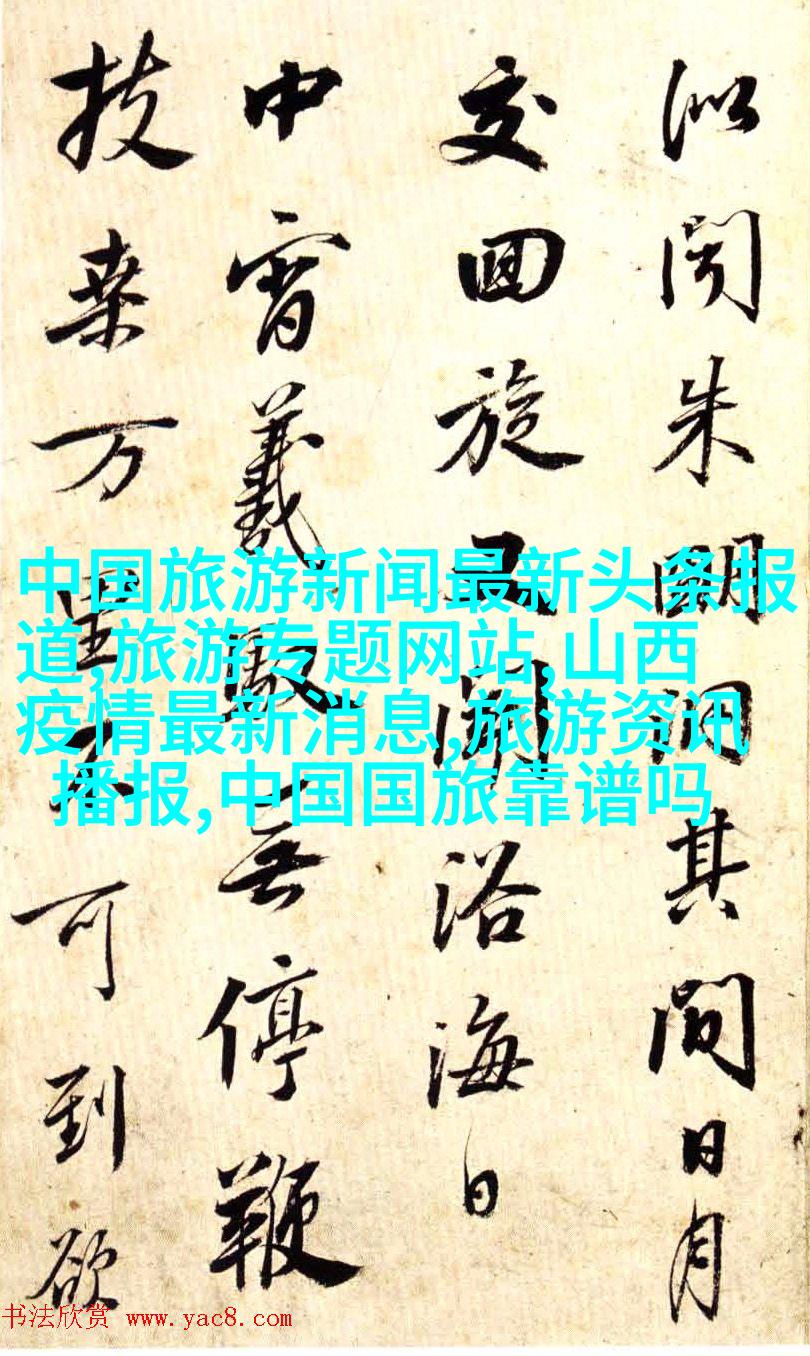 似闻朱明洞其间日月
交回旋又闻浴海日
中宵羲驭无停鞭
扶桑万里不可到欲
中国旅游新闻最新头条报
道,旅游专题网站,山西
疫情最新消息,旅游资讯
播报,中国国旅靠谱吗
书法欣赏 www.yac8.com